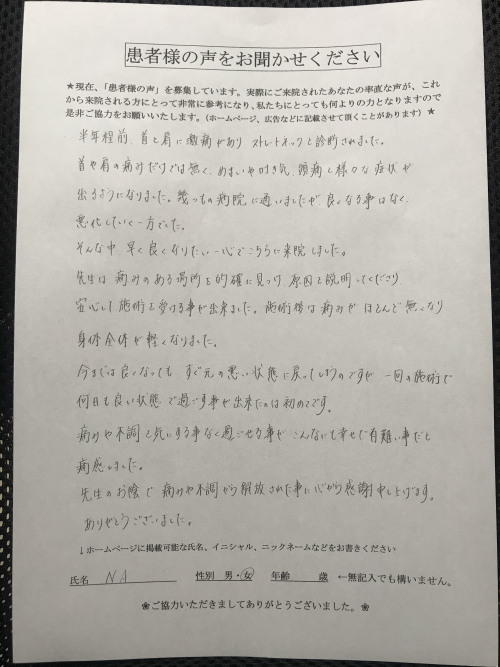 患者様の声をお聞かせください
★現在、「患者様の声」を募集しています。実際にご来院されたあなたの率直な声が、これ
から来院される方にとって非常に参考になり、私たちにとっても何よりの力となりますので
是非ご協力をお願いいたします。(ホームページ、広告などに記載させて頂くことがあります) ★
半年程前、首と肩に激痛があり ストレートネックと診断されました。
首や肩の痛みだけでは無く、めまいや吐き気、頭痛と様々な症状が
出るようになりました。幾つもの病院に通いましたが、良くなる事はなく、
悪化していく一方でした。
そんな中、早く良くなりたい一心でこちらに来院しました。
先生は 痛みのある場所を的確に見つけ 原因を説明してくださり
安心して施術を受ける事が出来ました。施術後は痛みが ほとんど無くなり
身体全体が軽くなりました。
今までは良くなっても すぐ元の悪い状態に戻ってしまうのですが 一回の施術で
何日も良い状態で過ごす事が出来たのは初めてです。
痛みや不調を気にする事なく過ごせる事が こんなにも幸せで有難い事だと
痛感しました。
先生のお陰で 痛みや不調から解放された事に心から感謝申し上げます。
ありがとうございました。
↓ホームページに掲載可能な氏名、イニシャル、ニックネームなどをお書きください
氏名 NA 性別 男・女 年齢 歳 ←無記入でも構いません。
❀ご協力いただきましてありがとうございました。❀